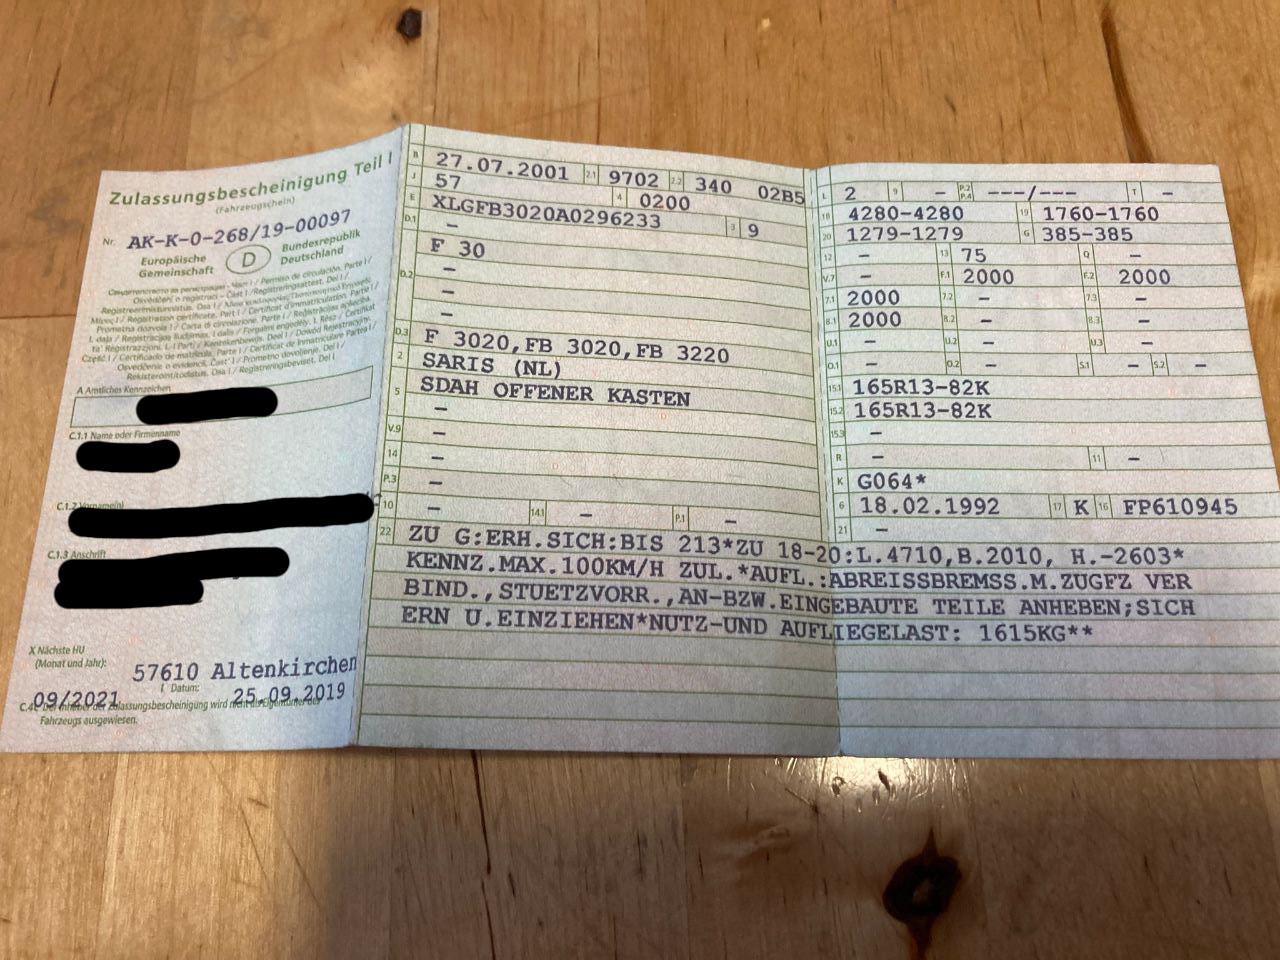 Zulassungsbescheinigung Teil I
(Fahrzeugschein)
Nr. AK-K-0-268/19-00097
Europäische Gemeinschaft D Bundesrepublik Deutschland
A Amtliches Kennzeichen
C.1.1 Name oder Firmenname
C.1.2 Vorname(n)
C.1.3 Anschrift
X Nächste HU
(Monat und Jahr):
57610 Altenkirchen
I Datum:
09/2021 25.09.2019
C.4c Der Inhaber der Zulassungsbescheinigung wird nicht als Eigentümer des
Fahrzeugs ausgewiesen.
B 27.07.2001 2.1 9702 2.2 340 02B5
J 57 4 0200
E XLGFB3020A0296233 3 9
D.1 –
F 30
D.2 –
–
–
D.3 F 3020,FB 3020,FB 3220
2 SARIS (NL)
5 SDAH OFFENER KASTEN
–
V.9 –
14 –
P.3 –
10 – 14.1 – P.1 –
L 2 9 – P.2 P.4 ---/--- T –
18 4280-4280 19 1760-1760
20 1279-1279 G 385-385
12 – 13 75 Q –
V.7 – F.1 2000 F.2 2000
7.1 2000 7.2 – 7.3 –
8.1 2000 8.2 – 8.3 –
U.1 – U.2 – U.3 –
O.1 – O.2 – S.1 – S.2 –
15.1 165R13-82K
15.2 165R13-82K
15.3 –
R – 11 –
K G064*
6 18.02.1992 17 K 16 FP610945
21 –
22 ZU G:ERH.SICH:BIS 213*ZU 18-20:L.4710,B.2010, H.-2603*
KENNZ.MAX.100KM/H ZUL.*AUFL.:ABREISSBREMSS.M.ZUGFZ VER
BIND.,STUETZVORR.,AN-BZW.EINGEBAUTE TEILE ANHEBEN;SICH
ERN U.EINZIEHEN*NUTZ-UND AUFLIEGELAST: 1615KG**